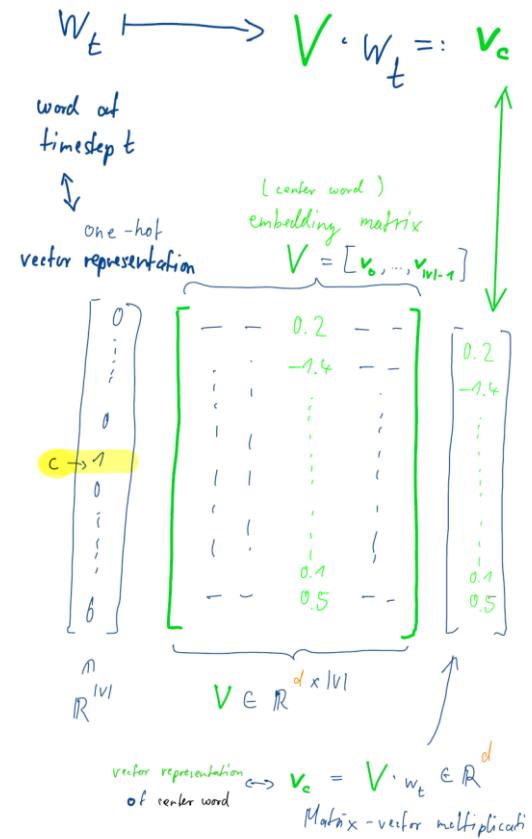 W_t ⟼ V · W_t =: v_c
word at
timestep t
↕
one-hot
vector representation
(center word)
embedding matrix
V = [v_0, ..., v_{|V|-1}]
0
0
c → 1
0
6
— — 0.2 — —
-1.4 — —
0.1
— — 0.5 — —
0.2
-1.4
0.1
0.5
ℝ^{|V|}
V ∈ ℝ^{d × |V|}
vector representation ↔ v_c = V · w_t ∈ ℝ^d
of center word
Matrix-vector multiplicati